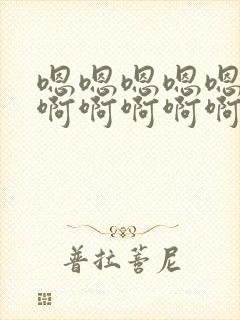 嗯嗯嗯嗯嗯
啊啊啊啊啊
普拉蓍尼